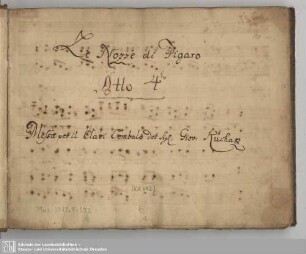 Le Nozze di Figaro
Atto 4to
Messa per il Clavi Cembalo del Sigr Giov. Kucharz
Sächsische Landesbibliothek -
Staats- und Universitätsbibliothek Dresden